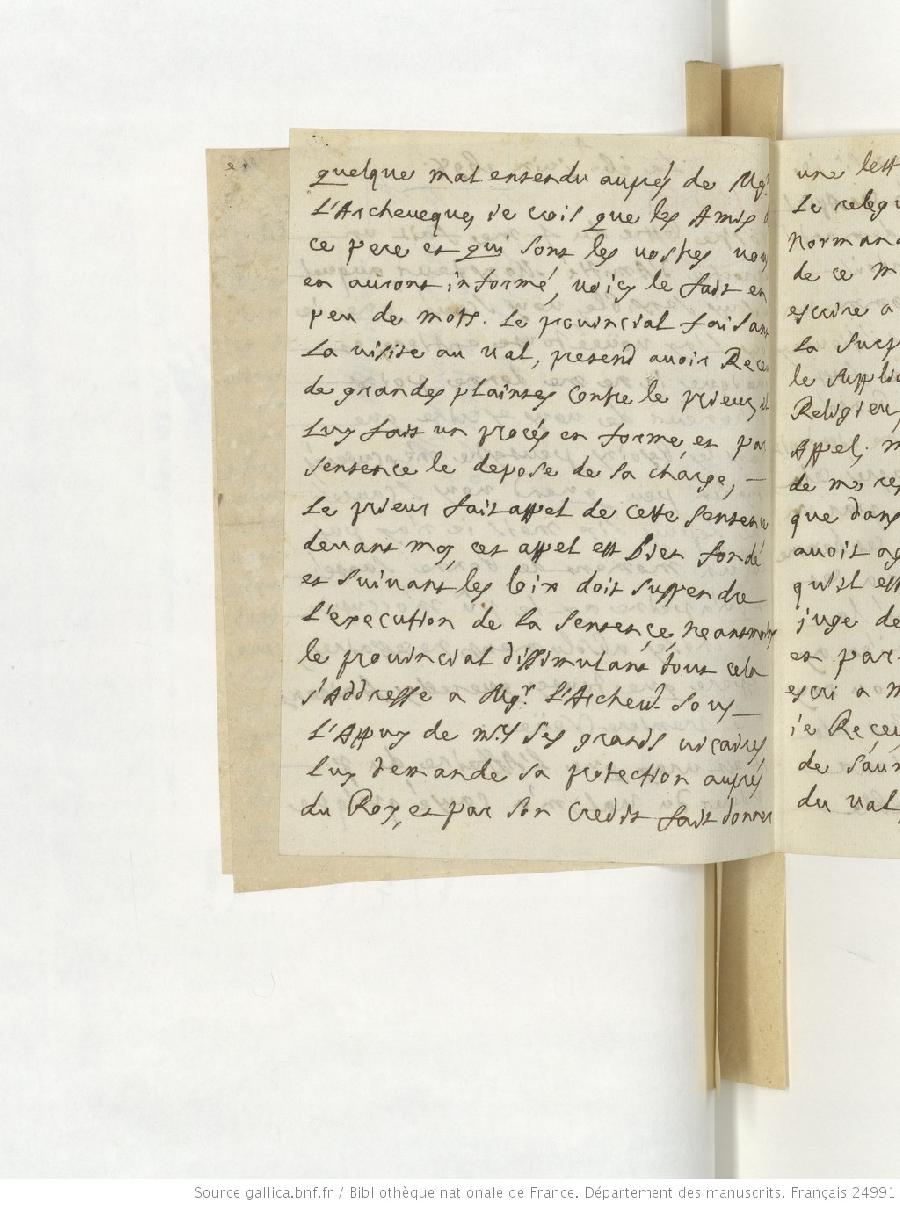 quelque mal entendu auprés de Mgr
L'Archeueque, ie crois que les Amis
ce pere et qui sont les vostres vous
en auront informé, voicy le fait en
peu de mots. Le prouincial faisant
La visite au val, pretend avoir Receu
de grandes plaintes contre le prieur, il
Luy fait un procés en forme, et par
sentence le depose de sa charge, —
Le prieur fait appel de cette sentence
devant moy, cet appel est bien fondé
et suivant les loix doit suspendre
L'execution de la sentence, neantmoins
le prouincial dissimulant tout cela
s'Addresse a Mgr. L'Archeu. sous —
L'Appuy de mrs ses grands vicaires
luy demande sa protection auprés
du Roy, et par son credit fait donner
une lett
Le releg
Normand
de ce m
escrire a
La Surp
le Suppli
Religieu
Appel, m
de mo res
que dans
avoit ag
qu'il est
juge de
et par
escri a m
ie Receu
de s'aur
du val,
Source gallica.bnf.fr / Bibliothèque nationale de France. Département des manuscrits. Français 24991